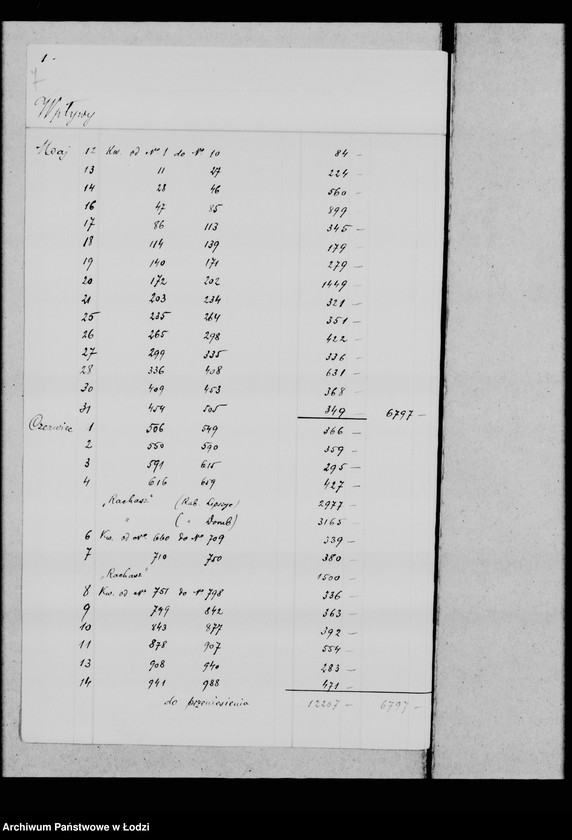 1.
7
Wpływy
Maj 12 Kw. od Nº 1 do Nº 10 84 –
13 11 27 224 –
14 28 46 560 –
16 47 85 899
17 86 113 345 –
18 114 139 179 –
19 140 171 279 –
20 172 202 1449 –
21 203 234 321 –
25 235 264 351 –
26 265 298 422 –
27 299 335 336 –
28 336 408 631 –
30 409 453 368 –
31 454 505 349 – 6797 –
Czerwiec 1 506 549 366 –
2 550 590 359 –
3 591 615 295 –
4 616 639 427 –
„Rachasz" (Rab. 2977 –
„ ( „ Domb) 3165 –
6 Kw. od Nº 640 do Nº 709 339 –
7 710 750 380 –
„Rachasz" 1500 –
8 Kw. od Nº 751 do Nº 798 336 –
9 799 842 363 –
10 843 877 392 –
11 878 907 554 –
13 908 940 283 –
14 941 988 471 –
do przeniesienia 12207 – 6797 –
Archiwum Państwowe w Łodzi